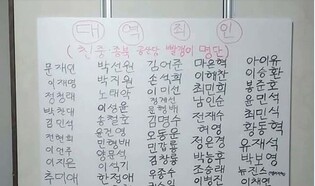 대역죄인
(친중 종북 공산당 빨갱이 명단)
문재인 박선원 김어준 마은혁 아이유
이재명 박지원 손석희 이해찬 이승환
정청래 노태악 이미선 최민희 봉준호
박찬대 이성윤 정계선 남인순 윤민석
김민석 손철호 문형배 전재수 최민식
전현희 윤건영 김명수 허영 황동혁
이언주 민형배 오동운 정은경 유재석
이지은 양문석 민갑룡 박능후 박보영
추미애 이석기 김창룡 조승래 뉴진스
한정애 우종수 이병진 이채연